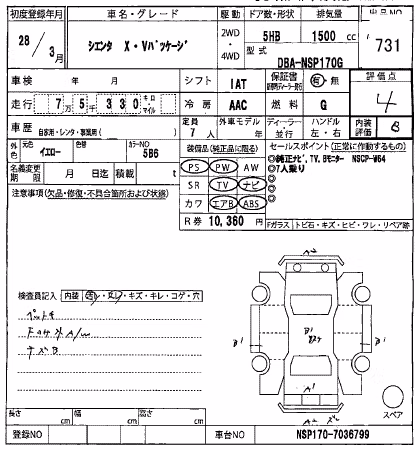 初度登録年月 車名・グレード 駆動 ドア数・形状 排気量 出品NO
28/3月 シエンタ X・Vパッケージ 2WD・4WD 5HB 1500cc 731
型式 DBA-NSP170G
車検 年 月 シフト IAT 保証書 有・無 評価点 4
走行 7万5千330キロ・マイル 冷房 AAC 燃料 G
車歴 自家用・レンタ・事業用( ) 定員 7人 外車モデル 年 ディーラー・並行 ハンドル 左・右 内装評価 B
外色 元色 イエロー 色替 カラーNO 5B6
名義変更期限 月 日迄 積載 t
装備品(純正品に限る)
PS PW AW
SR TV ナビ
カワ エアB ABS
R券 10,360 円
セールスポイント(正常に作動するもの)
◎純正ナビ,TV,Bモニター NSCP-W64
◎7人乗り
Fガラス トビ石・キズ・ヒビ・ワレ・リペア跡
注意事項(欠品・修復・不具合箇所および状態)
検査員記入 内装 ・キズ・キレ・コゲ・穴
A2
B1
B1
B1
A1
A2
スペア
長さ cm 幅 cm 高さ cm
登録NO 車台NO NSP170-7036799